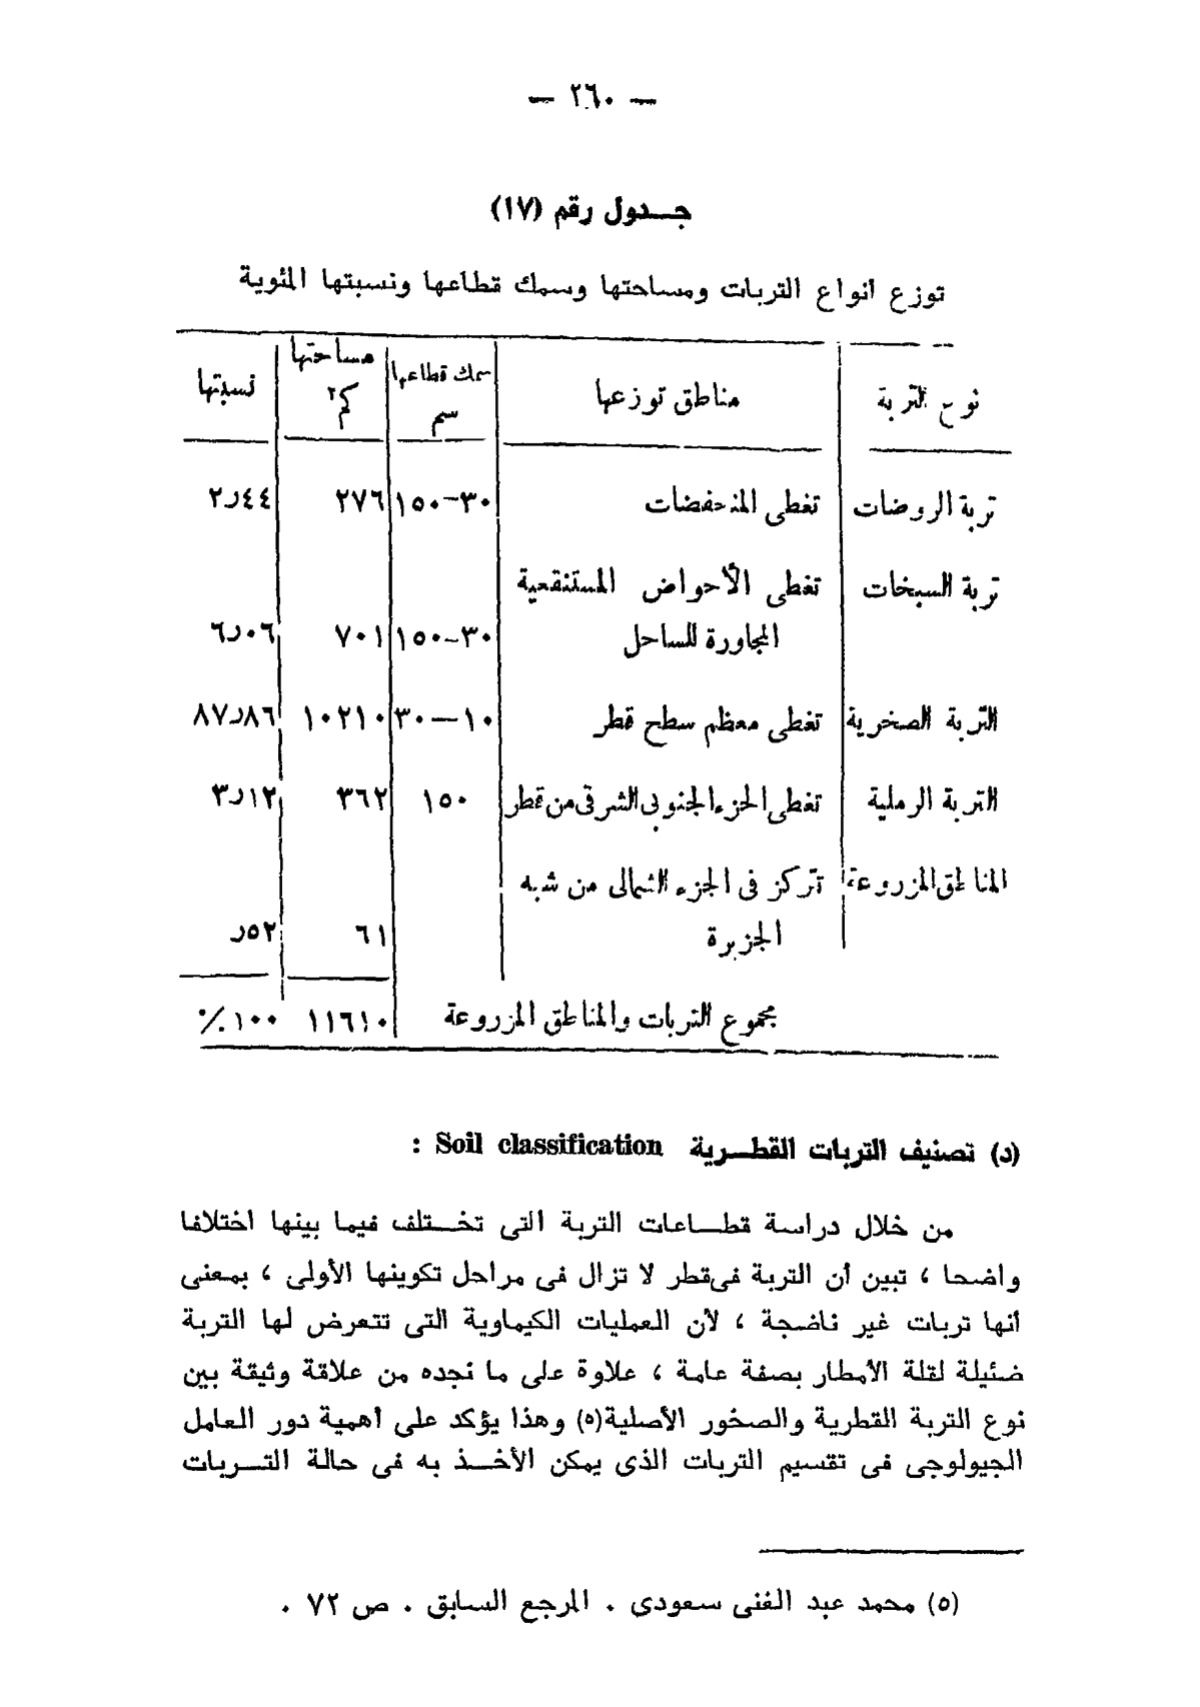 — ٢٦٠ —
جـــدول رقم (١٧)
توزع أنواع التربات ومساحتها وسمك قطاعها ونسبتها المئوية
نوع التربة | مناطق توزعها | سمك قطاعها سم | مساحتها كم٢ | نسبتها
تربة الروضات | تغطى المنخفضات | ٣٠–١٥٠ | ٢٧٦ | ٢ر٤٤
تربة السبخات | تغطى الأحواض المستنقعية
المجاورة للساحل | ٣٠–١٥٠ | ٧٠١ | ٦ر٠٦
التربة الصخرية | تغطى معظم سطح قطر | ١٠–٣٠ | ١٠٢١٠ | ٨٧ر٨٦
التربة الرملية | تغطى الجزء الجنوبى الشرقى من قطر | ١٥٠ | ٣٦٢ | ٣ر١٢
المناطق المزروعة | تتركز فى الجزء الشمالى من شبه
الجزيرة | ٦١ | ر٥٢
مجموع التربات والمناطق المزروعة | ١١٦١٠ | ١٠٠٪
(د) تصنيف التربات القطـــرية Soil classification :
من خلال دراسة قطـــاعات التربة التى تخـــتلف فيما بينها اختلافا
واضحا ، تبين أن التربة فى قطر لا تزال فى مراحل تكوينها الأولى ، بمعنى
أنها تربات غير ناضجة ، لأن العمليات الكيماوية التى تتعرض لها التربة
ضئيلة لقلة الأمطار بصفة عامة ، علاوة على ما نجده من علاقة وثيقة بين
نوع التربة القطرية والصخور الأصلية(٥) وهذا يؤكد على أهمية دور العامل
الجيولوجى فى تقسيم التربات الذى يمكن الأخـــذ به فى حالة التـــربات
(٥) محمد عبد الغنى سعودى . المرجع السابق . ص ٧٢ .